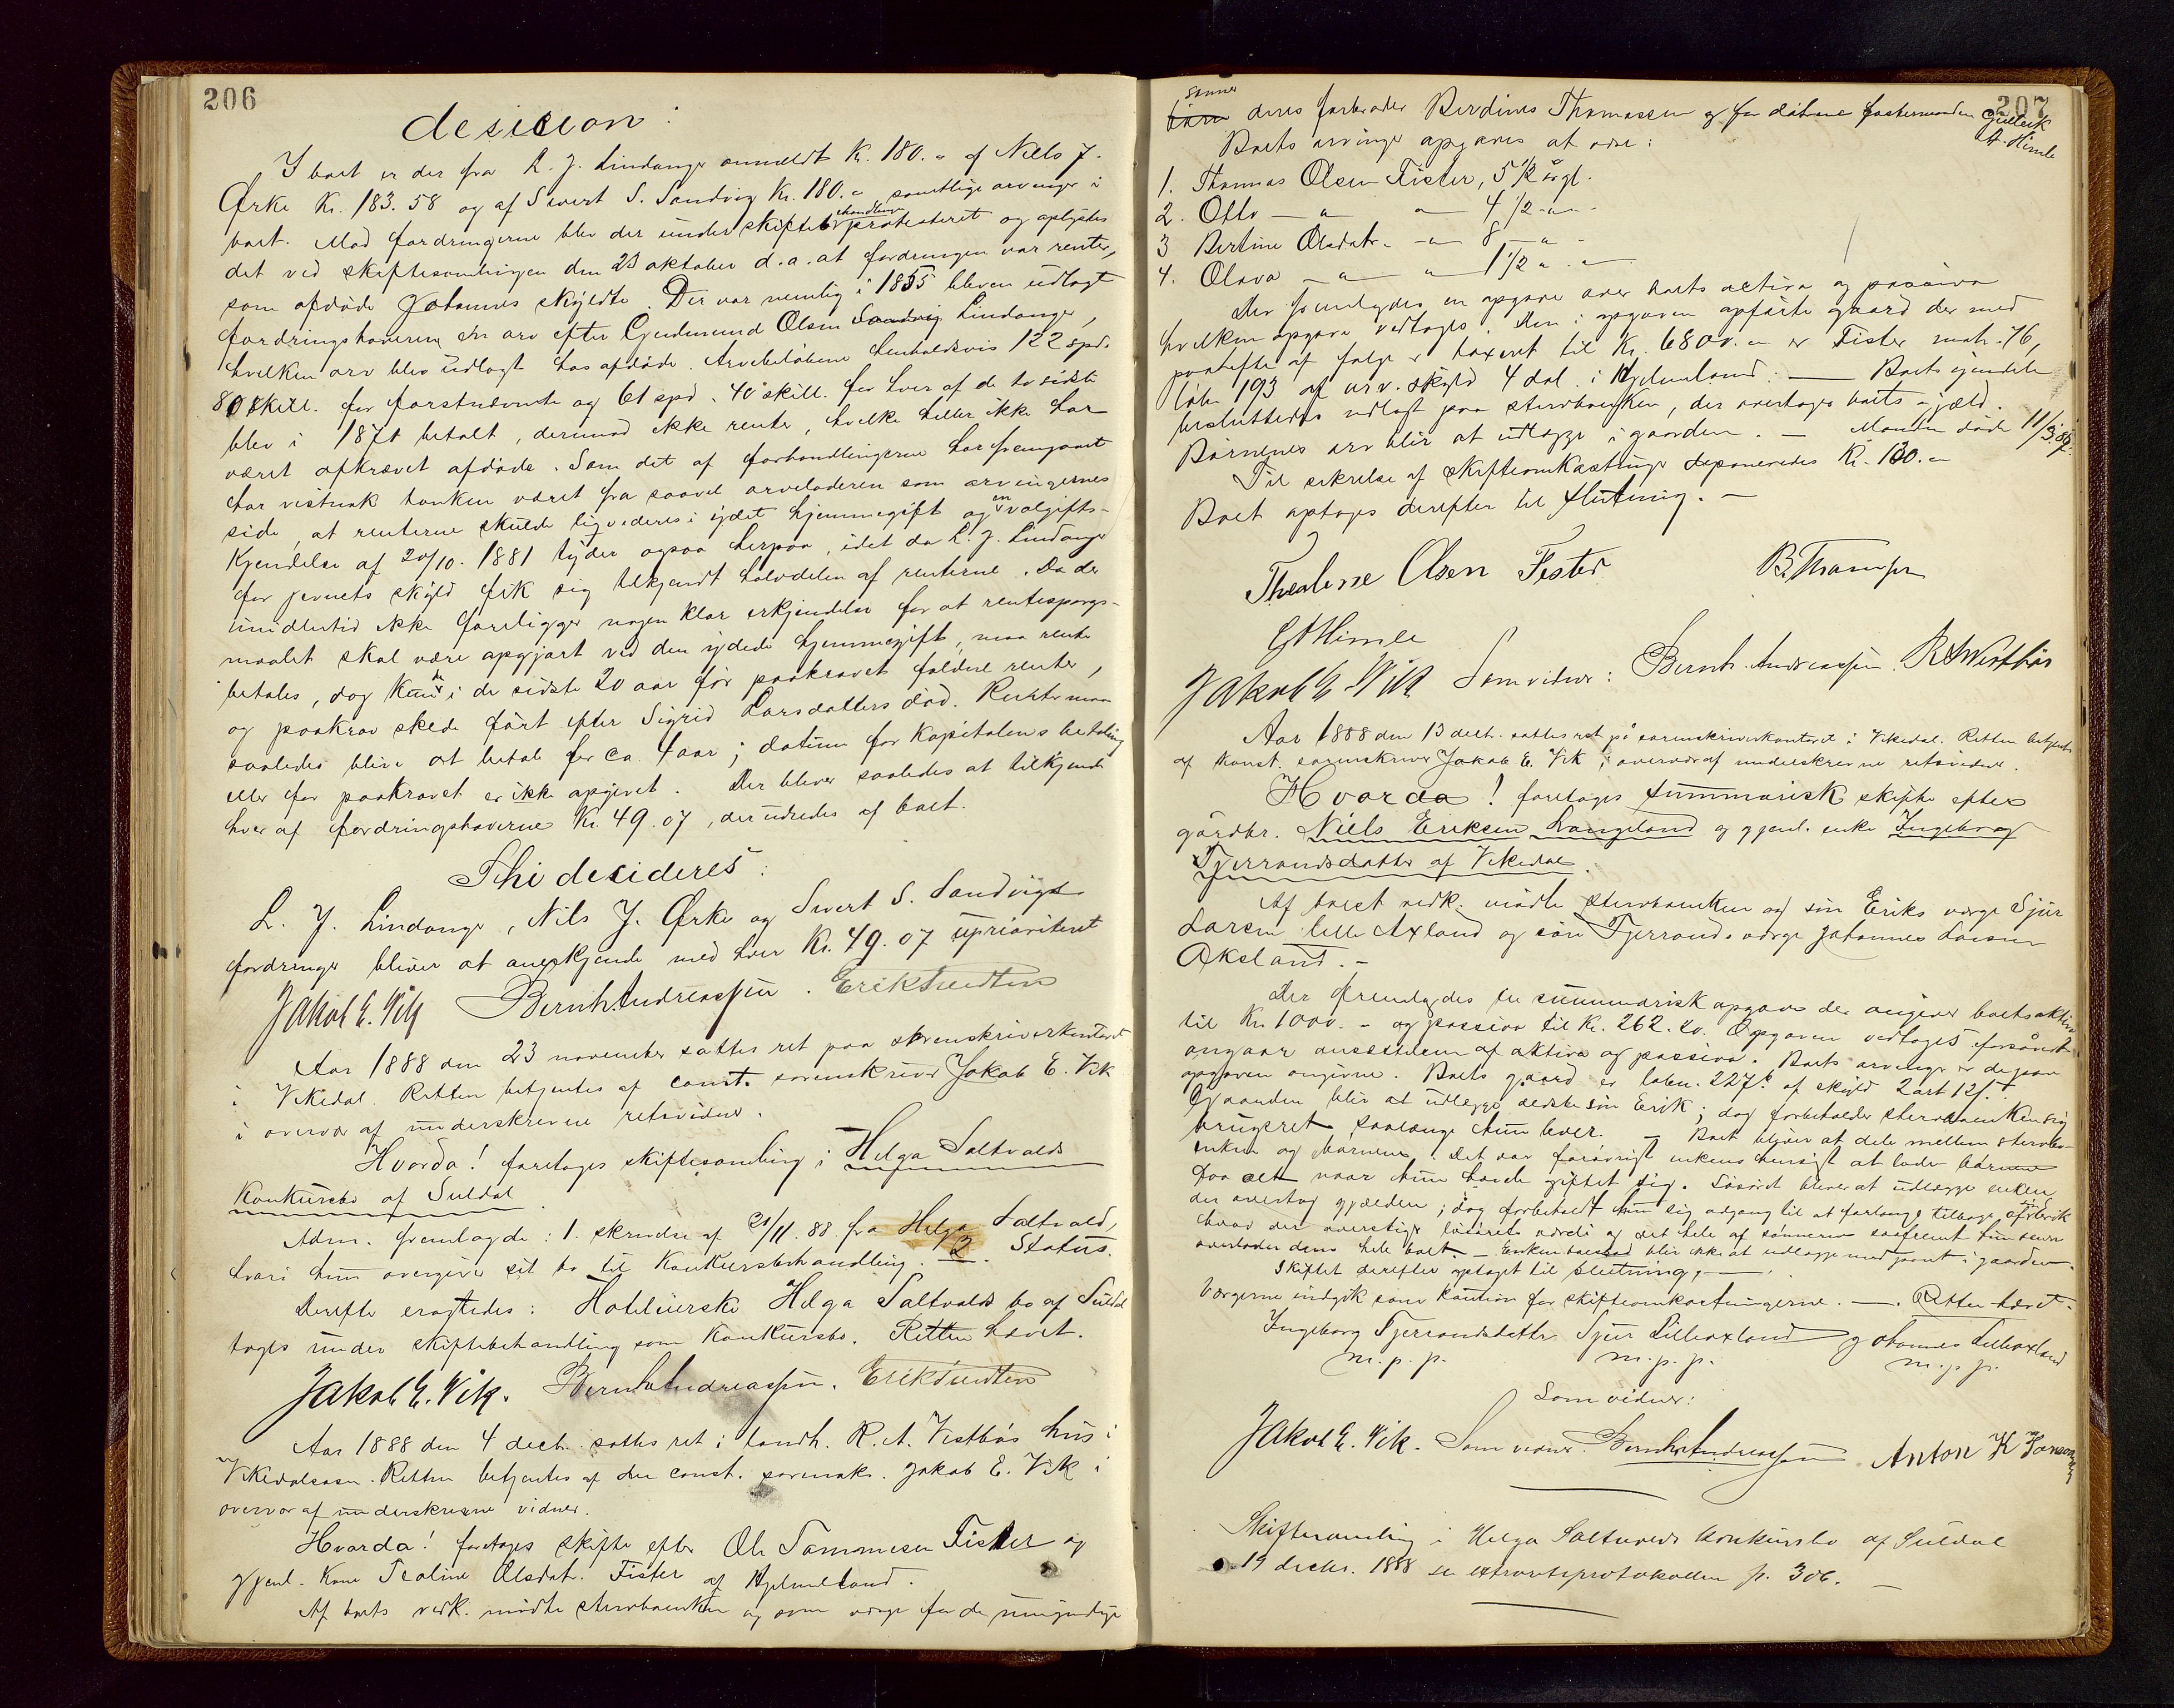 206
desicion:
I boet er der fra L. J. Lindanger anmeldt Kr. 180.- af Niels J.
Ørke Kr. 183.58 og af Sivert S. Sandvig Kr. 180.- samtlige arvinger i
boet. Mod fordringerne blev der under skiftebehandlingen protesteret og oplystes
det ved skiftesamlingen den 25 oktober d.a. at fordringen var renter,
som afdøde Johannes skyldte. Der var nemlig i 1855 bleven udlagt
fordringshaverne en arv efter Gudmund Olsen Sandvig Lindanger,
hvilken arv blev udlagt hos afdøde. Arvebeløbene henholdsvis 122 spd.
80 skill. for førstnævnte og 61 spd. 40 skill. for hver af de to sidste
blev i 1871 betalt, derimod ikke renter, hvilke heller ikke har
været afkrævet afdøde. Som det af forhandlingerne har fremgaaet
har vistnok tanken været fra saavel arveladeren som arvingernes
side, at renterne skulde ligvederes i ydet hjemmegift og en voldgifts-
Kjendelse af 20/10. 1881 tyder ogsaa herpaa, idet da L. J. Lindanger
for jevnets skyld fik sig tilkjendt halvdelen af renterne. Da der
imidlertid ikke foreligger nogen klar erkjendelse for at rentespørgs-
maalet skal være opgjort ved den ydede hjemmegift, maa rente
betales, dog kun de i de sidste 20 aar før paakravet faldne renter,
og paakrav skede først efter Sigrid Larsdatters død. Rente maa
saaledes blive at betale for ca. 4 aar; datum for Kapitalens betaling
eller for paakravet er ikke opgivet. Der bliver saaledes at tilkjende
hver af fordringshaverne Kr. 49.07, der udredes af boet.
Thi desideres:
L. J. Lindanger, Nils J. Ørke og Sivert S. Sandvigs
fordringer bliver at anerkjende med hver Kr. 49.07 uprioriteret
Jakob E. Vik Bernh. Andreassen. Erik Sundten
Aar 1888 den 23 november sattes ret paa sorenskriverkontoret
i Vikedal. Retten betjentes af const. sorenskriver Jakob E. Vik
i overvær af underskrevne retsvidner.
Hvorda! foretoges skiftesamling i Helga Saltvolds
Konkursbo af Suldal.
Adm. fremlagde: 1. skrivelse af 21/11.88 fra Helga Saltvold,
hvori hun overgiver sit bo til Konkursbehandling. — 2. Status.
Derefter eragtedes: Hotelvertske Helga Saltvolds bo af Suldal
tages under skiftebehandling som Konkursbo. Retten hævet.
Jakob E. Vik. Bernh. Andreassen. Erik Sundten
Aar 1888 den 4 decb. sattes ret i landh. R. A. Vestbøs hus i
Vikedalsosen. Retten betjentes af den const. sorensk. Jakob E. Vik i
overvær af underskrevne vidner.
Hvorda! foretoges skifte efter Ole Tommesen Fister og
gjenl. Kone Tealine Olsdat. Fister af Hjelmeland.
Af boets vedk. mødte stervboenken og som værge for de umyndige
207
sønner
børn deres farbroder Berdines Thomassen og for døtrene fostermanden Gulleik
A. Himle
Boets arvinger opgaves at være:
1. Thomas Olsen Fister, 5 1/2 årgl.
2. Otto — " — " — 4 1/2 - " -
3 Bertine Olsdatr. - " - 8 — " -
4. Olava — " — " 1 1/2 " -
Der fremlagdes en opgave over boets activa og passiva
hvilken opgave vedtoges. Den i opgaven opførte gaard der med
paahefte af folge er taxeret til Kr. 6800.- er Fister matr. 76,
løbe 193 af urv. skyld 4 dal. i Hjelmeland. — Boets ejendele
besluttedes udlagt paa stervboenken, der overtager boets gjæld.
Børnenes arv blir at udlægge i gaarden. — Manden døde 11/3 86.
Til sikrelse af skifteomkostninger deponeredes Kr. 130.-
Boet optoges derefter til slutning. —
Thealine Olsen Fister B. Thomsen
G A Himle
Jakob E Vik Som vidner: Bernh. Andreassen. R A Vestbøs
Aar 1888 den 13 decb. sattes ret på sorenskriverkontoret i Vikedal. Retten betjentes
af konst. sorenskriver Jakob E. Vik i overvær af underskrevne retsvidner.
Hvorda! foretoges summarisk skifte efter
gårdbr. Niels Eriksen Langeland og gjenl. enke Ingeborg
Tjerrandsdatter af Vikedal.
Af boets vedk. mødte stervboenken og søn Eriks værge Sjur
Larsen lille Axland og søn Tjerrands værge Johannes Larsen
Aksland. -
Der fremlagdes en summarisk opgave der angiver boets aktiva
til Kr. 1000.- og passiva til Kr. 262.20. Opgaven vedtoges forsåvidt
angaar ansættelsen af aktiva og passiva. Boets arvinger er de paa
opgaven angivne. Boets gaard er løben. 227b af skyld 2 ort 12 s.
Gaarden blir at udlægge ældste søn Erik; dog forbeholder stervboenken sig
brugsret saalænge hun lever. — Boet bliver at dele mellem stervbo-
enken og børnene. Det var forøvrigt enkens hensigt at lade børnene
faa alt naar hun havde giftet sig. Løsøret bliver at udlægge enken,
der overtog gjælden; dog forbeholdt hun sig adgang til at forlange tilbage af søn Erik
hvad der overstiger løsørets værdi og det hele af sønnerne saafremt hun senere
overlader dem hele boet. — Enkens boeslod blir ikke at udlægge med pant i gaarden.
Skiftet derefter optaget til slutning. —
Værgerne indgik som kaution for skifteomkostningerne. —. Retten hævet.
Ingeborg Tjerrandsdatter Sjur Lilleaxland Johannes Lilleaxland
m.p.p. m.p.p. m.p.p.
Som vidner:
Jakob E. Vik. Som vidner. Bernh. Andreassen Anton K Hansen
Skiftesamling i Helga Saltvolds konkursbo af Suldal
19 decbr. 1888 se extraretsprotokollen p. 306. —